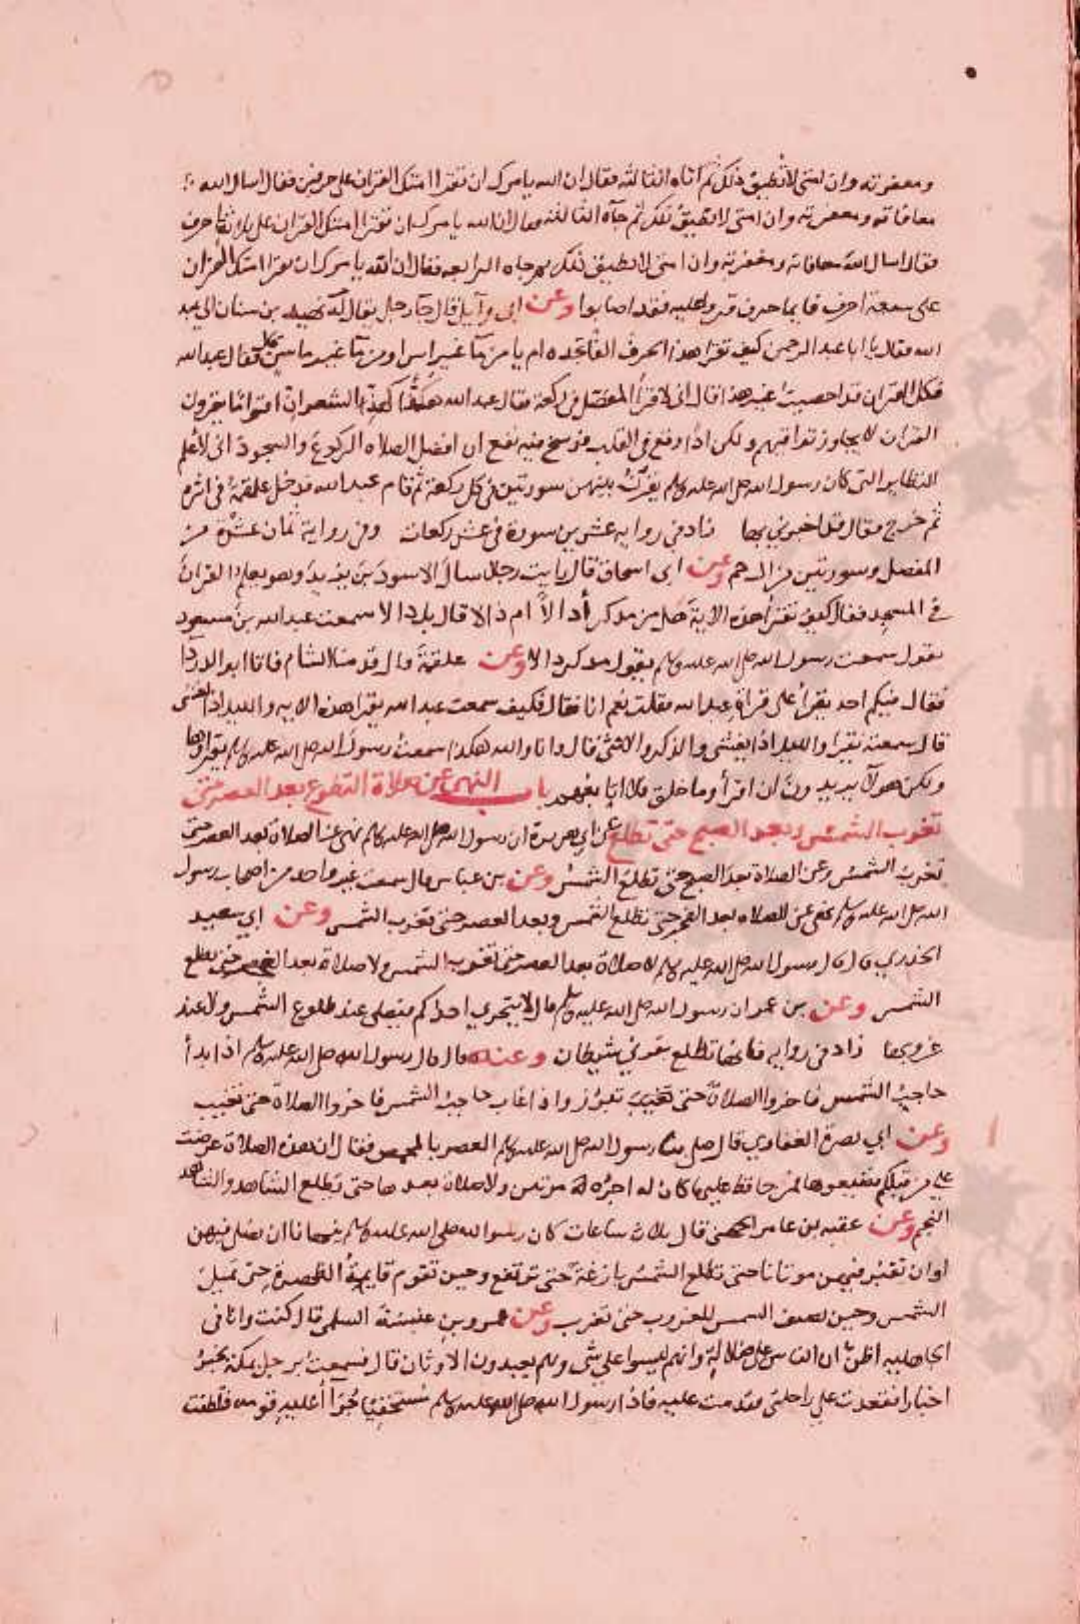 ومعفرته وان امتي لا تطيق ذلك ثم اتاه الثالثة فقال ان الله يامرك ان تقرا امتك القران على حرفين فقال اسال الله
معافاته ومعفرته وان امتى لا تطيق ذلك ثم جآه الثالثة فقال ان الله يامرك ان تقرا امتك القران على ثلاثة احرف
فقال اسال الله معافاته ومغفرته وان امتى لا تطيق ذلك ثم جاه الرابعه فقال ان الله يامرك ان تقرا امتك القران
على سبعة احرف فايما حرف قروا عليه فقد اصابوا وعن ابى وآيل قال جآ رجل يقال له نهيك بن سنان الى عبد
الله فقال يا ابا عبد الرحمن كيف تقرا هذا الحرف الفا تجده ام يا من مآ غير اسن او من مآ غير ياسن فقال عبد الله
فكل القران قد احصيت غير هذا قال انى لاقرأ المفصل فى ركعة فقال عبد الله هذًّا كهذ الشعر ان اقواما يقرون
القران لا يجاوز تراقيهم ولكن اذا وقع فى القلب فرسخ فيه نفع ان افضل الصلاه الركوع والسجود انى لاعلم
النظاير التى كان رسول الله صلى الله عليه وسلم يقرن بينهن سورتين فى كل ركعة ثم قام عبد الله فدخل علقمة فى اثره
ثم خرج فقال قد اخبرني بها زاد فى روايه عشرين سورة فى عشر ركعات وفى رواية ثمان عشرة من
المفصل وسورتين من ال حم وعن ابى اسحاق قال رايت رجلا سال الاسود بن يزيد وهو يعلم القران
في المسجد فقال كيف تقرأ هذه الاية فهل من مدكر أدالاً ام ذالا قال بل دالا سمعت عبد الله بن مسعود
يقول سمعت رسول الله صلى الله عليه وسلم يقول مدكر دالا وعن علقمة قال قدمنا الشام فاتانا ابو الدردا
فقال فيكم احد يقرأ على قراة عبد الله فقلت نعم انا فقال فكيف سمعت عبد الله يقرا هذه الايه والليل اذا يغشى
قال سمعته يقرا والليل اذا يغشى والذكر والانثى قال وانا والله هكذا سمعت رسول الله صلى الله عليه وسلم يقراوها
ولكن هولآ يريدون ان اقرأ وما خلق فلا اتابعهم باب النهى عن صلاة التطوع بعد العصر حتى
تغرب الشمس وبعد الصبح حتى تطلع عن ابي هريرة ان رسول الله صلى الله عليه وسلم نهى عن الصلاة بعد العصر حتى
تغرب الشمس وعن الصلاة بعد الصبح حتى تطلع الشمس وعن بن عباس قال سمعت غير واحد من اصحاب رسول
الله صلى الله عليه وسلم نهى عن الصلاه بعد الفجر حتى تطلع الشمس وبعد العصر حتى تغرب الشمس وعن ابي سعيد
الخدري قال قال رسول الله صلى الله عليه وسلم لا صلاة بعد العصر حتى تغرب الشمس ولا صلاة بعد الفجر حتى تطلع
الشمس وعن بن عمر ان رسول الله صلى الله عليه وسلم قال لا يتحري احدكم فيصلى عند طلوع الشمس ولا عند
غروبها زاد فى روايه فانها تطلع بقرني شيطان وعنه قال قال رسول الله صلى الله عليه وسلم اذا بدأ
حاجب الشمس فاخروا الصلاة حتى تبرز واذا غاب حاجب الشمس فاخروا الصلاة حتى تغيب
وعن ابي بصرة الغفاري قال صلى بنا رسول الله صلى الله عليه وسلم العصر بالمخمص فقال ان هذه الصلاة عرضت
على من قبلكم فضيعوها فمن حافظ عليها كان له اجره مرتين ولا صلاة بعدها حتى يطلع الشاهد والشاهد
النجم وعن عقبه بن عامر الجهنى قال ثلاث ساعات كان رسول الله صلى الله عليه وسلم ينهانا ان نصلى فيهن
او ان نقبر فيهن موتانا حتى تطلع الشمس بازغة حتى ترتفع وحين تقوم قايم الظهيرة حتى تميل
الشمس وحين تضيف الشمس للغروب حتى تغرب وعن عمرو بن عنبسة السلمى قال كنت وانا فى
الجاهليه اظن ان الناس على ضلالة وانهم ليسوا على شى وهم يعبدون الاوثان قال فسمعت برجل بمكة يخبر
اخبارا فقعدت على راحلتى فقدمت عليه فاذا رسول الله صلى الله عليه وسلم مستخفيا جُرَآ عليه قومه فتلطفت